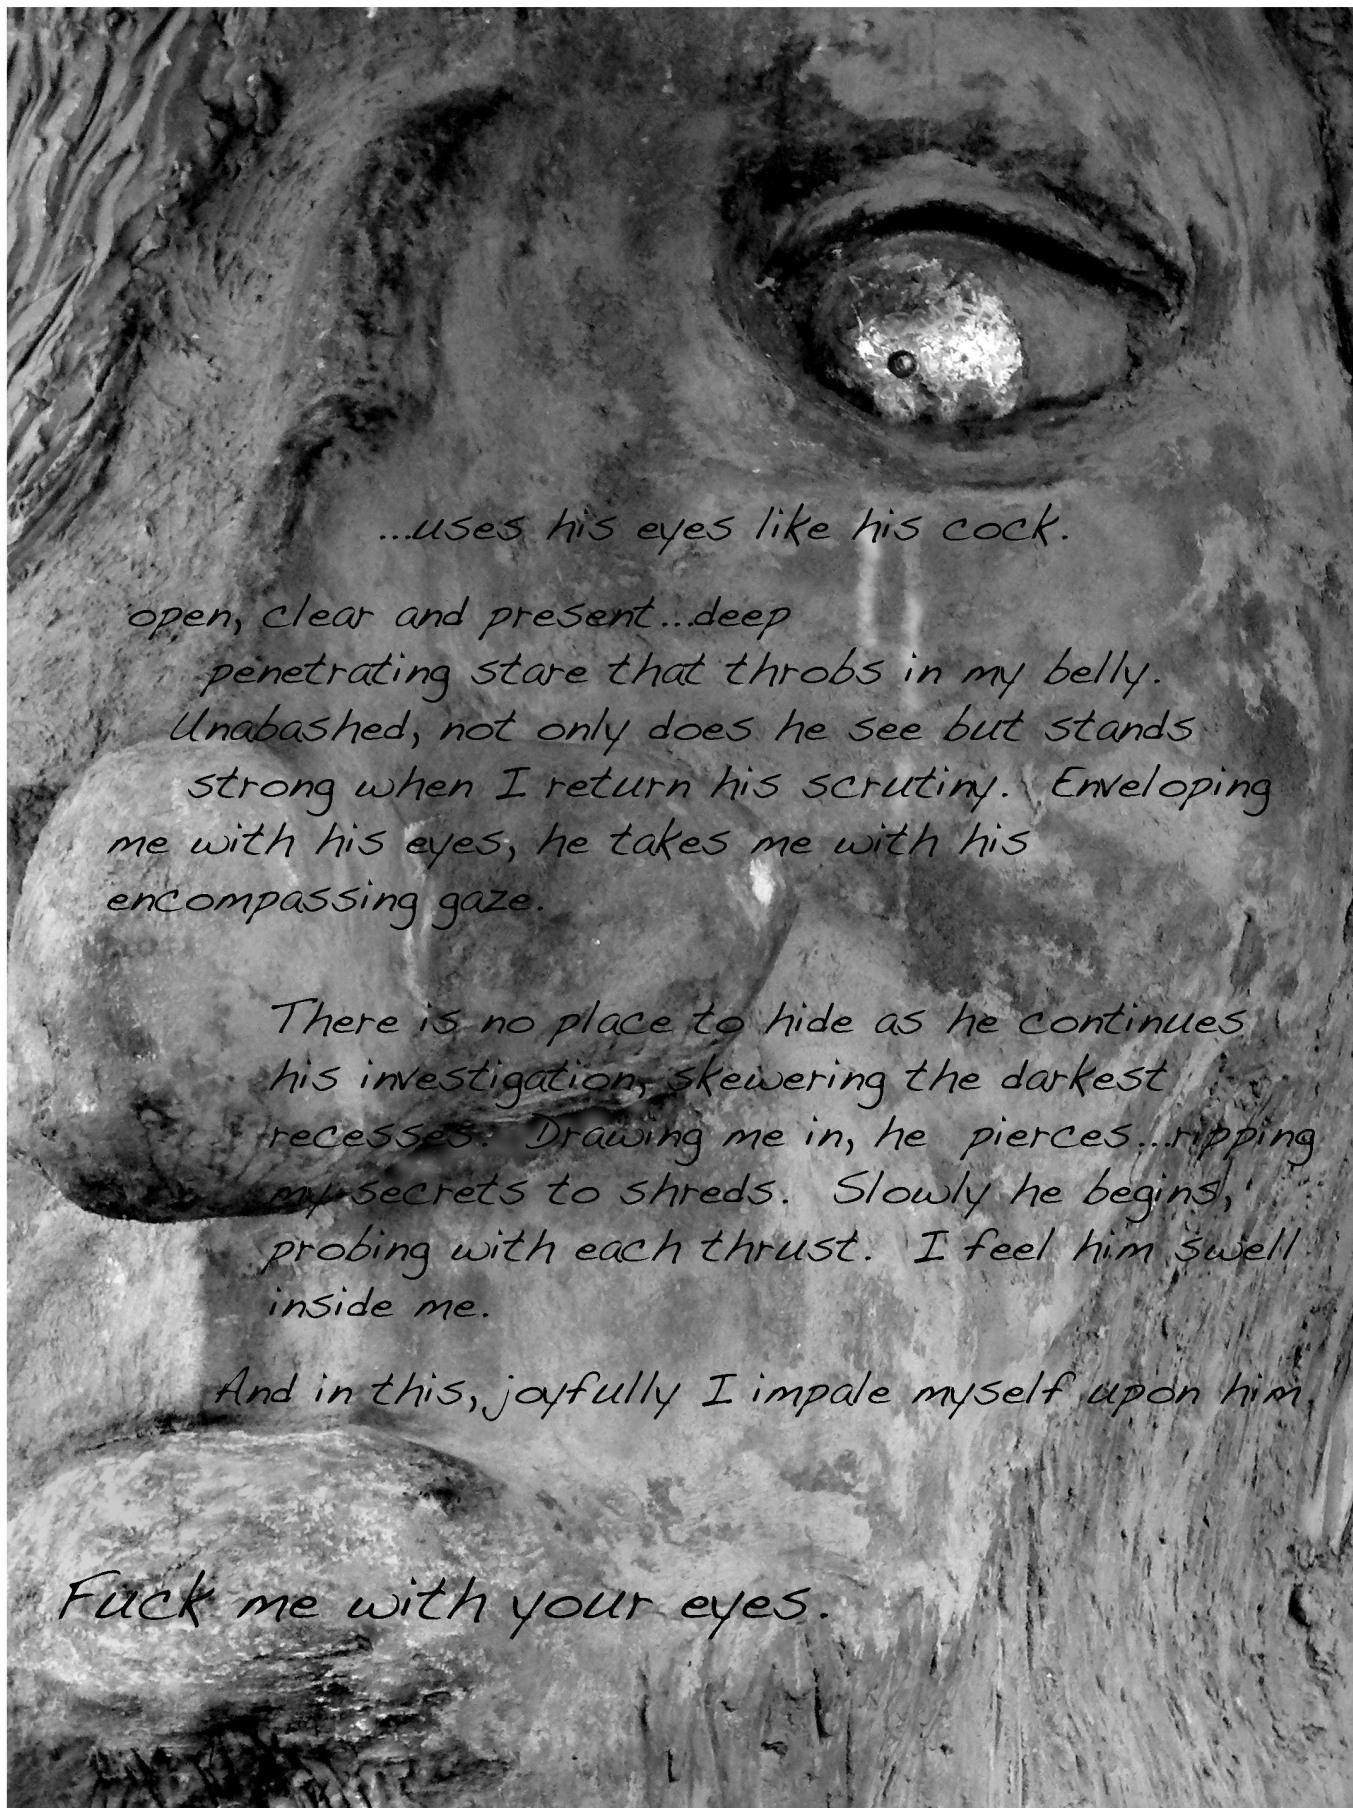 ...uses his eyes like his cock.
open, clear and present...deep
penetrating stare that throbs in my belly.
Unabashed, not only does he see but stands
strong when I return his scrutiny. Enveloping
me with his eyes, he takes me with his
encompassing gaze.
There is no place to hide as he continues
his investigation, skewering the darkest
recesses. Drawing me in, he pierces...ripping
my secrets to shreds. Slowly he begins,
probing with each thrust. I feel him swell
inside me.
And in this, joyfully I impale myself upon him.
Fuck me with your eyes.